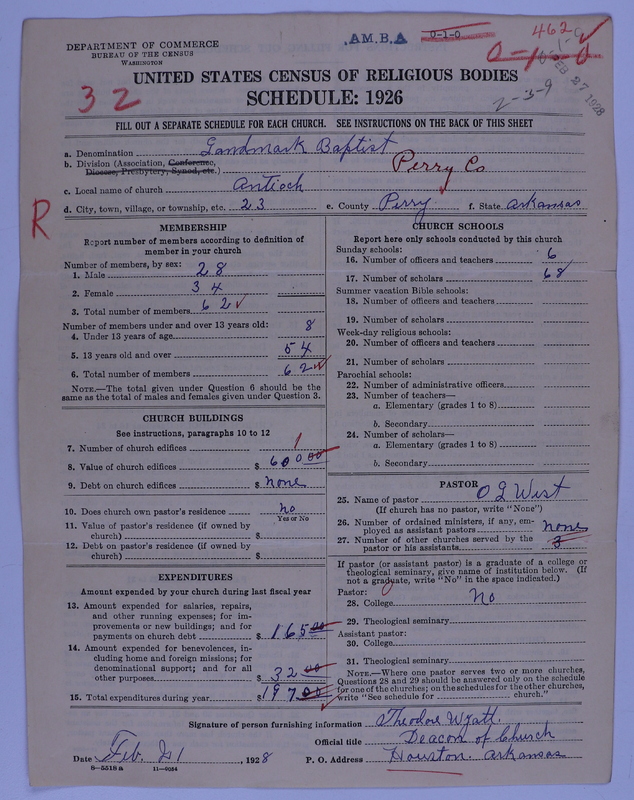 DEPARTMENT OF COMMERCE
BUREAU OF THE CENSUS
WASHINGTON
A.M.B.A
0-1-0
462
FEB 27 1928
2-3-9
32
UNITED STATES CENSUS OF RELIGIOUS BODIES
SCHEDULE: 1926
FILL OUT A SEPARATE SCHEDULE FOR EACH CHURCH. SEE INSTRUCTIONS ON THE BACK OF THIS SHEET
a. Denomination Landmark Baptist
b. Division (Association, Conference, Diocese, Presbytery, Synod, etc.) Perry Co
c. Local name of church Antioch
d. City, town, village, or township, etc. 23 e. County Perry f. State Arkansas
R
MEMBERSHIP
Report number of members according to definition of
member in your church
Number of members, by sex:
1. Male 28
2. Female 34
3. Total number of members 62
Number of members under and over 13 years old:
4. Under 13 years of age 8
5. 13 years old and over 54
6. Total number of members 62
NOTE.—The total given under Question 6 should be the
same as the total of males and females given under Question 3.
CHURCH BUILDINGS
See instructions, paragraphs 10 to 12
7. Number of church edifices 1
8. Value of church edifices $ 600 00
9. Debt on church edifices $ none
10. Does church own pastor's residence? no
Yes or No
11. Value of pastor's residence (if owned by
church) $
12. Debt on pastor's residence (if owned by
church) $
EXPENDITURES
Amount expended by your church during last fiscal year
13. Amount expended for salaries, repairs,
and other running expenses; for im-
provements or new buildings; and for
payments on church debt $ 165 00
14. Amount expended for benevolences, in-
cluding home and foreign missions; for
denominational support; and for all
other purposes $ 32 00
15. Total expenditures during year $ 197 00
CHURCH SCHOOLS
Report here only schools conducted by this church
Sunday schools:
16. Number of officers and teachers 6
17. Number of scholars 68
Summer vacation Bible schools:
18. Number of officers and teachers
19. Number of scholars
Week-day religious schools:
20. Number of officers and teachers
21. Number of scholars
Parochial schools:
22. Number of administrative officers
23. Number of teachers—
a. Elementary (grades 1 to 8)
b. Secondary
24. Number of scholars—
a. Elementary (grades 1 to 8)
b. Secondary
PASTOR
25. Name of pastor O L West
(If church has no pastor, write "None")
26. Number of ordained ministers, if any, em-
ployed as assistant pastors none
27. Number of other churches served by the
pastor or his assistants 3
If pastor (or assistant pastor) is a graduate of a college or
theological seminary, give name of institution below. (If
not a graduate, write "No" in the space indicated.)
Pastor:
28. College No
29. Theological seminary
Assistant pastor:
30. College
31. Theological seminary
NOTE.—Where one pastor serves two or more churches,
Questions 28 and 29 should be answered only on the schedule
for one of the churches; on the schedules for the other churches,
write "See schedule for church."
Signature of person furnishing information Theodore Wyatt
Official title Deacon of Church
Date Feb 21, 1928 P. O. Address Houston Arkansas
8—5518a 11—9054